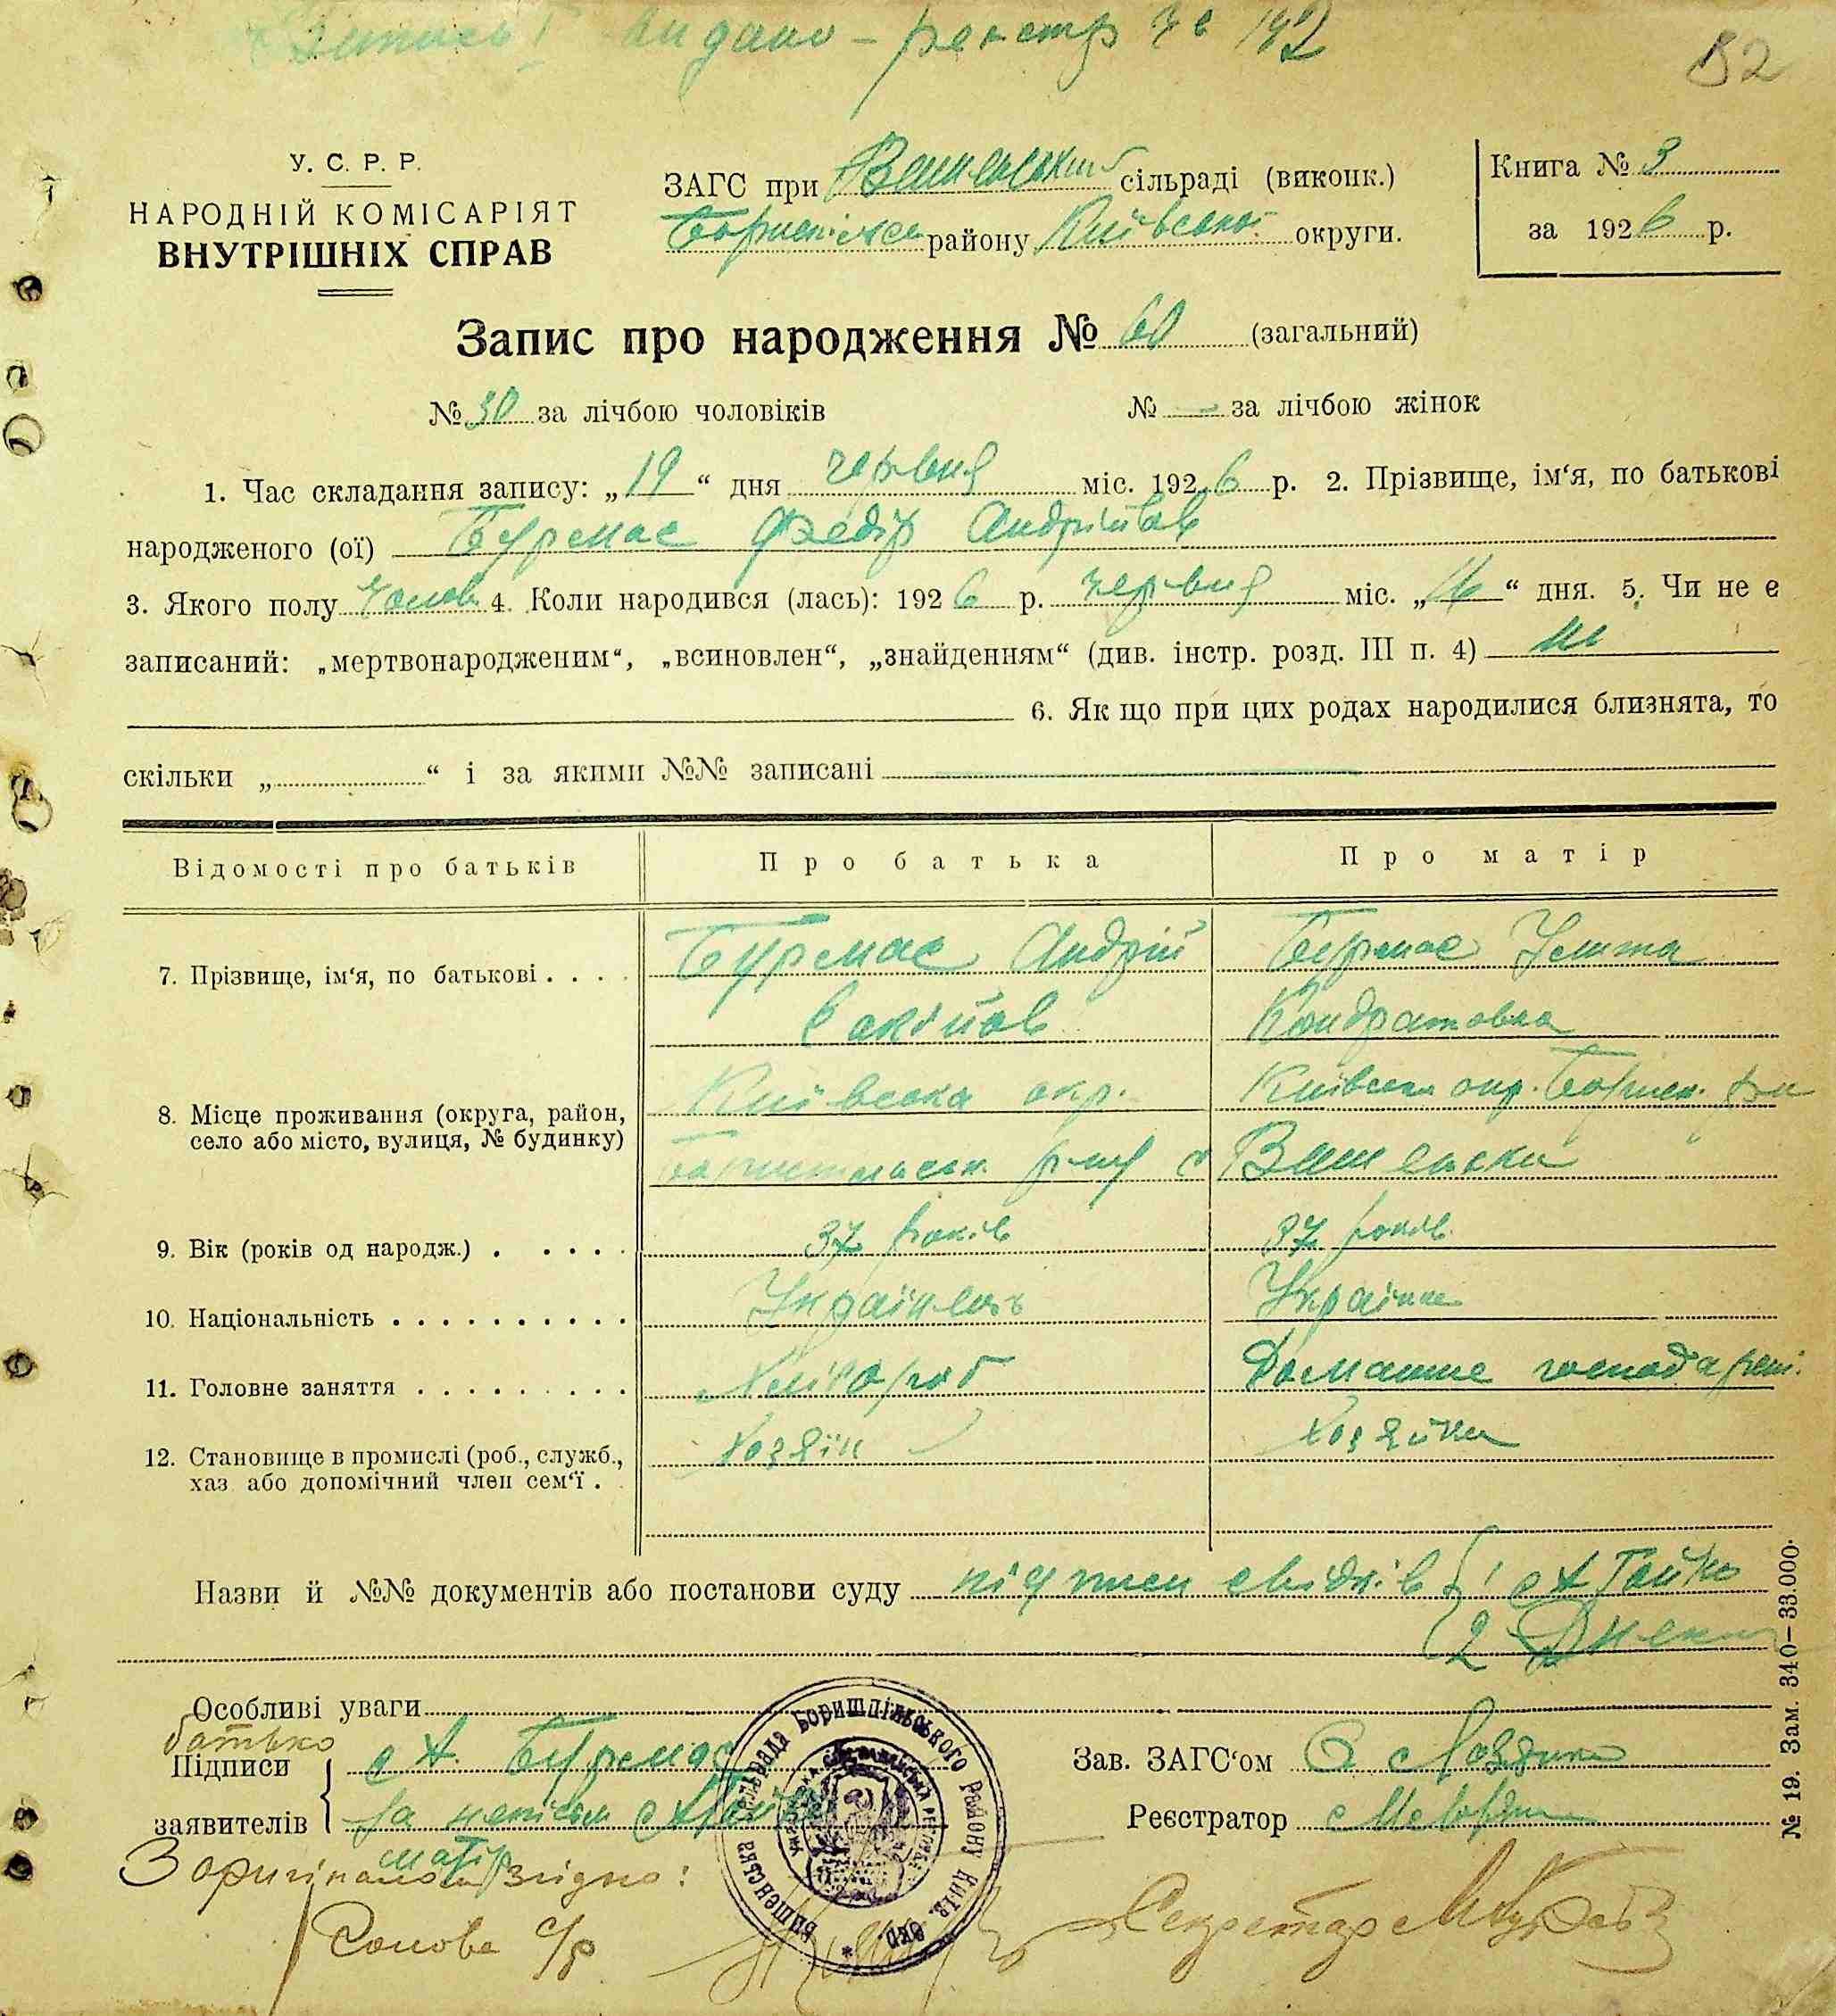 видано - реєстр
У. С. Р. Р.
НАРОДНІЙ КОМІСАРІЯТ
ВНУТРІШНІХ СПРАВ
ЗАГС при сільраді (виконк.)
району Київської округи.
Книга № 3
за 1926 р.
Запис про народження № 60 (загальний)
№ 30 за лічбою чоловіків № — за лічбою жінок
1. Час складання запису: „19“ дня червня міс. 1926 р. 2. Прізвище, ім‘я, по батькові
народженого (ої) Бурмас Федір Андріїв
3. Якого полу чолов 4. Коли народився (лась): 1926 р. червня міс. „16“ дня. 5. Чи не є
записаний: „мертвонародженим“, „всиновлен“, „знайденням“ (див. інстр. розд. III п. 4) ні
6. Як що при цих родах народилися близнята, то
скільки „ “ і за якими №№ записані
Відомості про батьків Про батька Про матір
7. Прізвище, ім‘я, по батькові Бурмас Андрій Бурмас
Кондратовна
8. Місце проживання (округа, район,
село або місто, вулиця, № будинку)
Київська окр. Київська окр.
9. Вік (років од народж.) 37 років 37 років
10. Національність Українець Українка
11. Головне заняття Хлібороб Домашне господарст.
12. Становище в промислі (роб., служб.,
хаз або допомічний член сем‘ї
Хозяїн Хозяйка
Назви й №№ документів або постанови суду підписи свідків 1
2
Особливі уваги
батько
Підписи
заявителів
Бурмас
за неписьм
матір
Зав. ЗАГС‘ом
Реєстратор
Вишенська сільрада Бориспільського Району Київ. Окр.
З оригіналом згідно:
Голова с/р
Секретар
№ 19. Зам. 340–33.000.